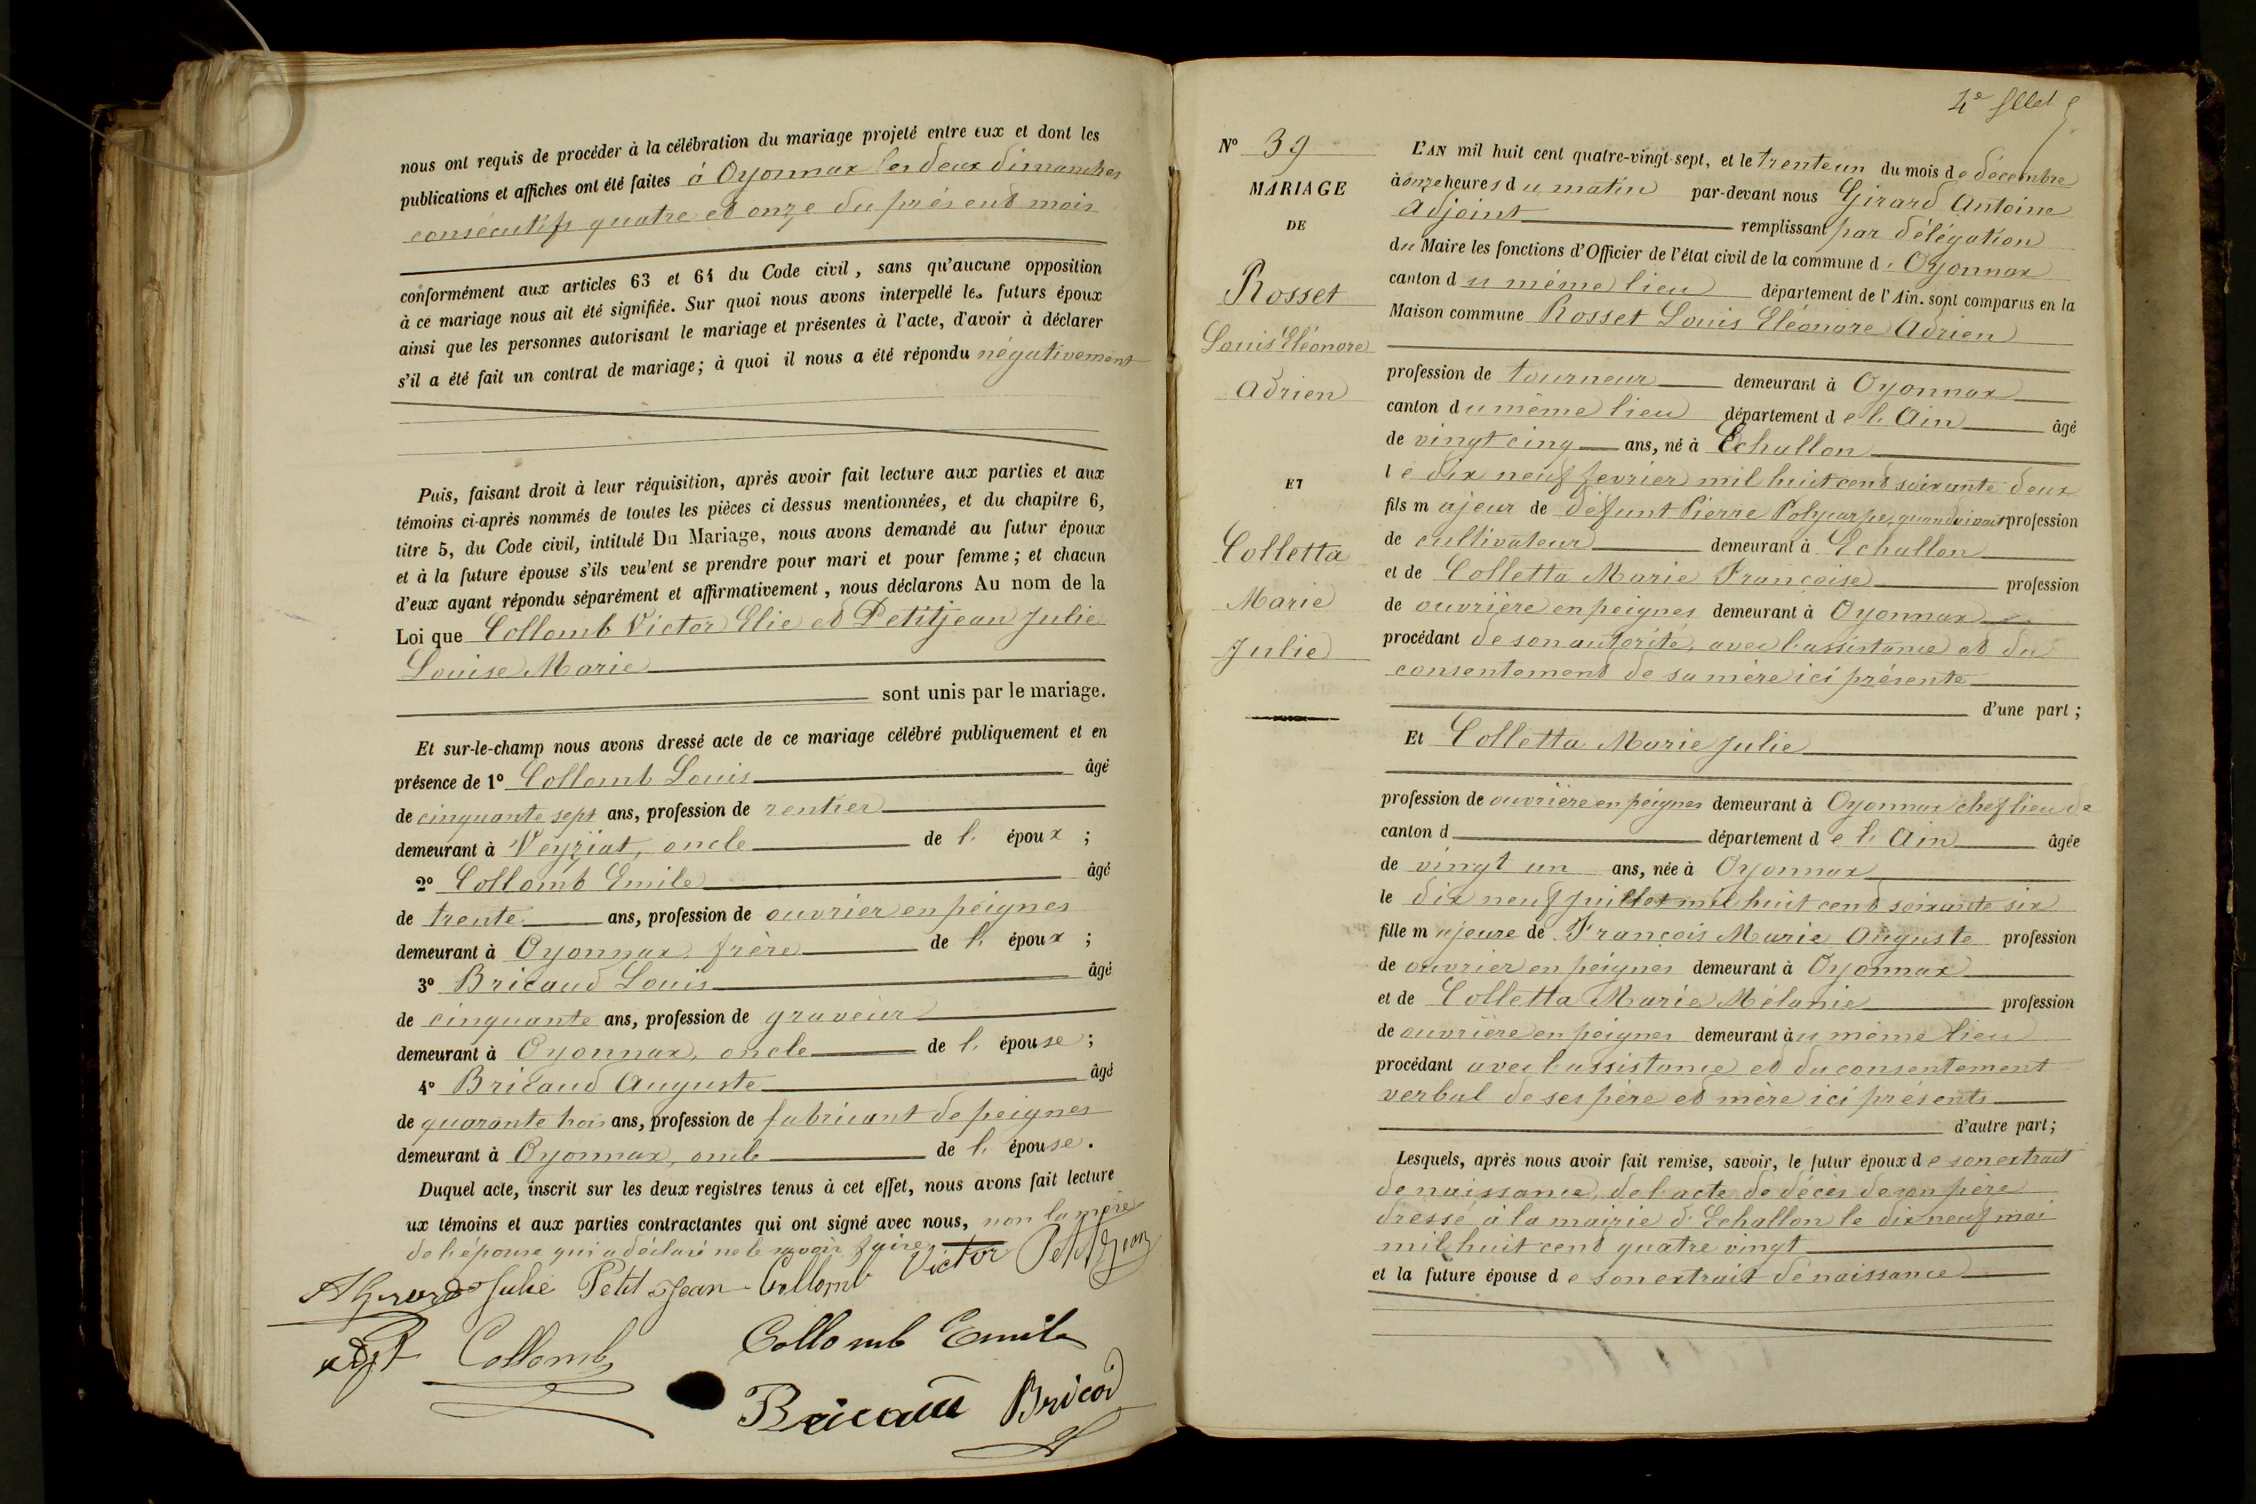 nous ont requis de procéder à la célébration du mariage projeté entre eux et dont les
publications et affiches ont été faites à Oyonnax les deux dimanches
consécutifs quatre et onze du présent mois
conformément aux articles 63 et 64 du Code civil, sans qu'aucune opposition
à ce mariage nous ait été signifiée. Sur quoi nous avons interpellé les futurs époux
ainsi que les personnes autorisant le mariage et présentes à l'acte, d'avoir à déclarer
s'il a été fait un contrat de mariage; à quoi il nous a été répondu négativement
Puis, faisant droit à leur réquisition, après avoir fait lecture aux parties et aux
témoins ci-après nommés de toutes les pièces ci dessus mentionnées, et du chapitre 6,
titre 5, du Code civil, intitulé Du Mariage, nous avons demandé au futur époux
et à la future épouse s'ils veulent se prendre pour mari et pour femme; et chacun
d'eux ayant répondu séparément et affirmativement, nous déclarons Au nom de la
Loi que Collomb Victor Elie et Petitjean Julie
Louise Marie
sont unis par le mariage.
Et sur-le-champ nous avons dressé acte de ce mariage célébré publiquement et en
présence de 1° Collomb Louis âgé
de cinquante sept ans, profession de rentier
demeurant à Veyziat, oncle de l' époux ;
2° Collomb Emile âgé
de trente ans, profession de ouvrier en peignes
demeurant à Oyonnax, frère de l' époux ;
3° Bricaud Louis âgé
de cinquante ans, profession de graveur
demeurant à Oyonnax, oncle de l' épouse ;
4° Bricaud Auguste âgé
de quarante trois ans, profession de fabricant de peignes
demeurant à Oyonnax, oncle de l' épouse.
Duquel acte, inscrit sur les deux registres tenus à cet effet, nous avons fait lecture
ux témoins et aux parties contractantes qui ont signé avec nous, non la mère
de l'épouse qui a déclaré ne le savoir faire.
AGirard Julie Petit Jean Collomb Victor Petitjean
adjt Collomb Collomb Emile
Bricaud Bricod
4e fllet
N° 39
MARIAGE
DE
Rosset
Louis Eléonore
Adrien
ET
Colletta
Marie
Julie
L'AN mil huit cent quatre-vingt-sept, et le trente un du mois de décembre
à onze heures du matin par-devant nous Girard Antoine
Adjoint remplissant par délégation
du Maire les fonctions d'Officier de l'état civil de la commune d' Oyonnax
canton du même lieu département de l'Ain. sont comparus en la
Maison commune Rosset Louis Eléonore Adrien
profession de tourneur demeurant à Oyonnax
canton du même lieu département de l'Ain âgé
de vingt cinq ans, né à Echallon
le dix neuf fevrier mil huit cent soixante deux
fils majeur de défunt Pierre Polycarpe, quand vivait profession
de cultivateur demeurant à Echallon
et de Colletta Marie Françoise profession
de ouvrière en peignes demeurant à Oyonnax
procédant de son autorité, avec l'assistance et du
consentement de sa mère ici présente
d'une part ;
Et Colletta Marie Julie
profession de ouvrière en peignes demeurant à Oyonnax chef lieu de
canton d département de l'Ain âgée
de vingt un ans, née à Oyonnax
le dix neuf juillet mil huit cent soixante six
fille majeure de François Marie Auguste profession
de ouvrier en peignes demeurant à Oyonnax
et de Colletta Marie Mélanie profession
de ouvrière en peignes demeurant au même lieu
procédant avec l'assistance et du consentement
verbal de ses père et mère ici présents
d'autre part;
Lesquels, après nous avoir fait remise, savoir, le futur époux de son extrait
de naissance, de l'acte de décès de son père
dressé à la mairie d'Echallon le dix neuf mai
mil huit cent quatre vingt
et la future épouse de son extrait de naissance